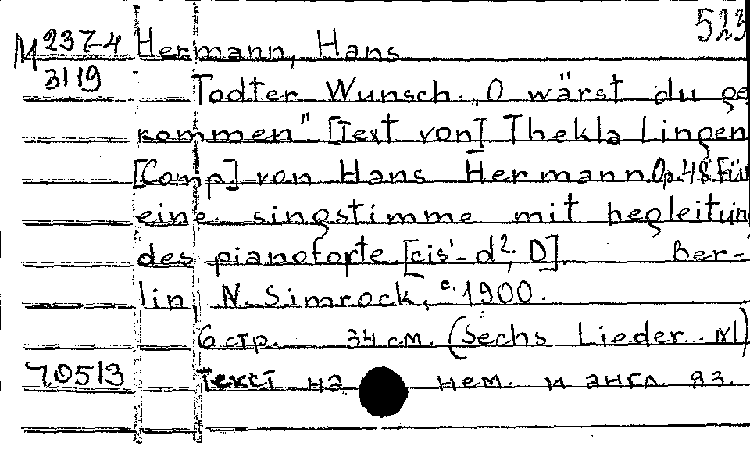 523
M 237-4 Hermann, Hans
3119
Todter Wunsch. „O wärst du ge
kommen" [Text von] Thekla Lingen
[Comp] von Hans Hermann. Op.48. Für
eine singstimme mit begleitun
des pianoforte [cis'- d², D]. Ber-
lin, N. Simrock, c. 1900.
6 стр. 34 см. (Sechs Lieder. №1)
70513 Текст на нем. и англ. яз.